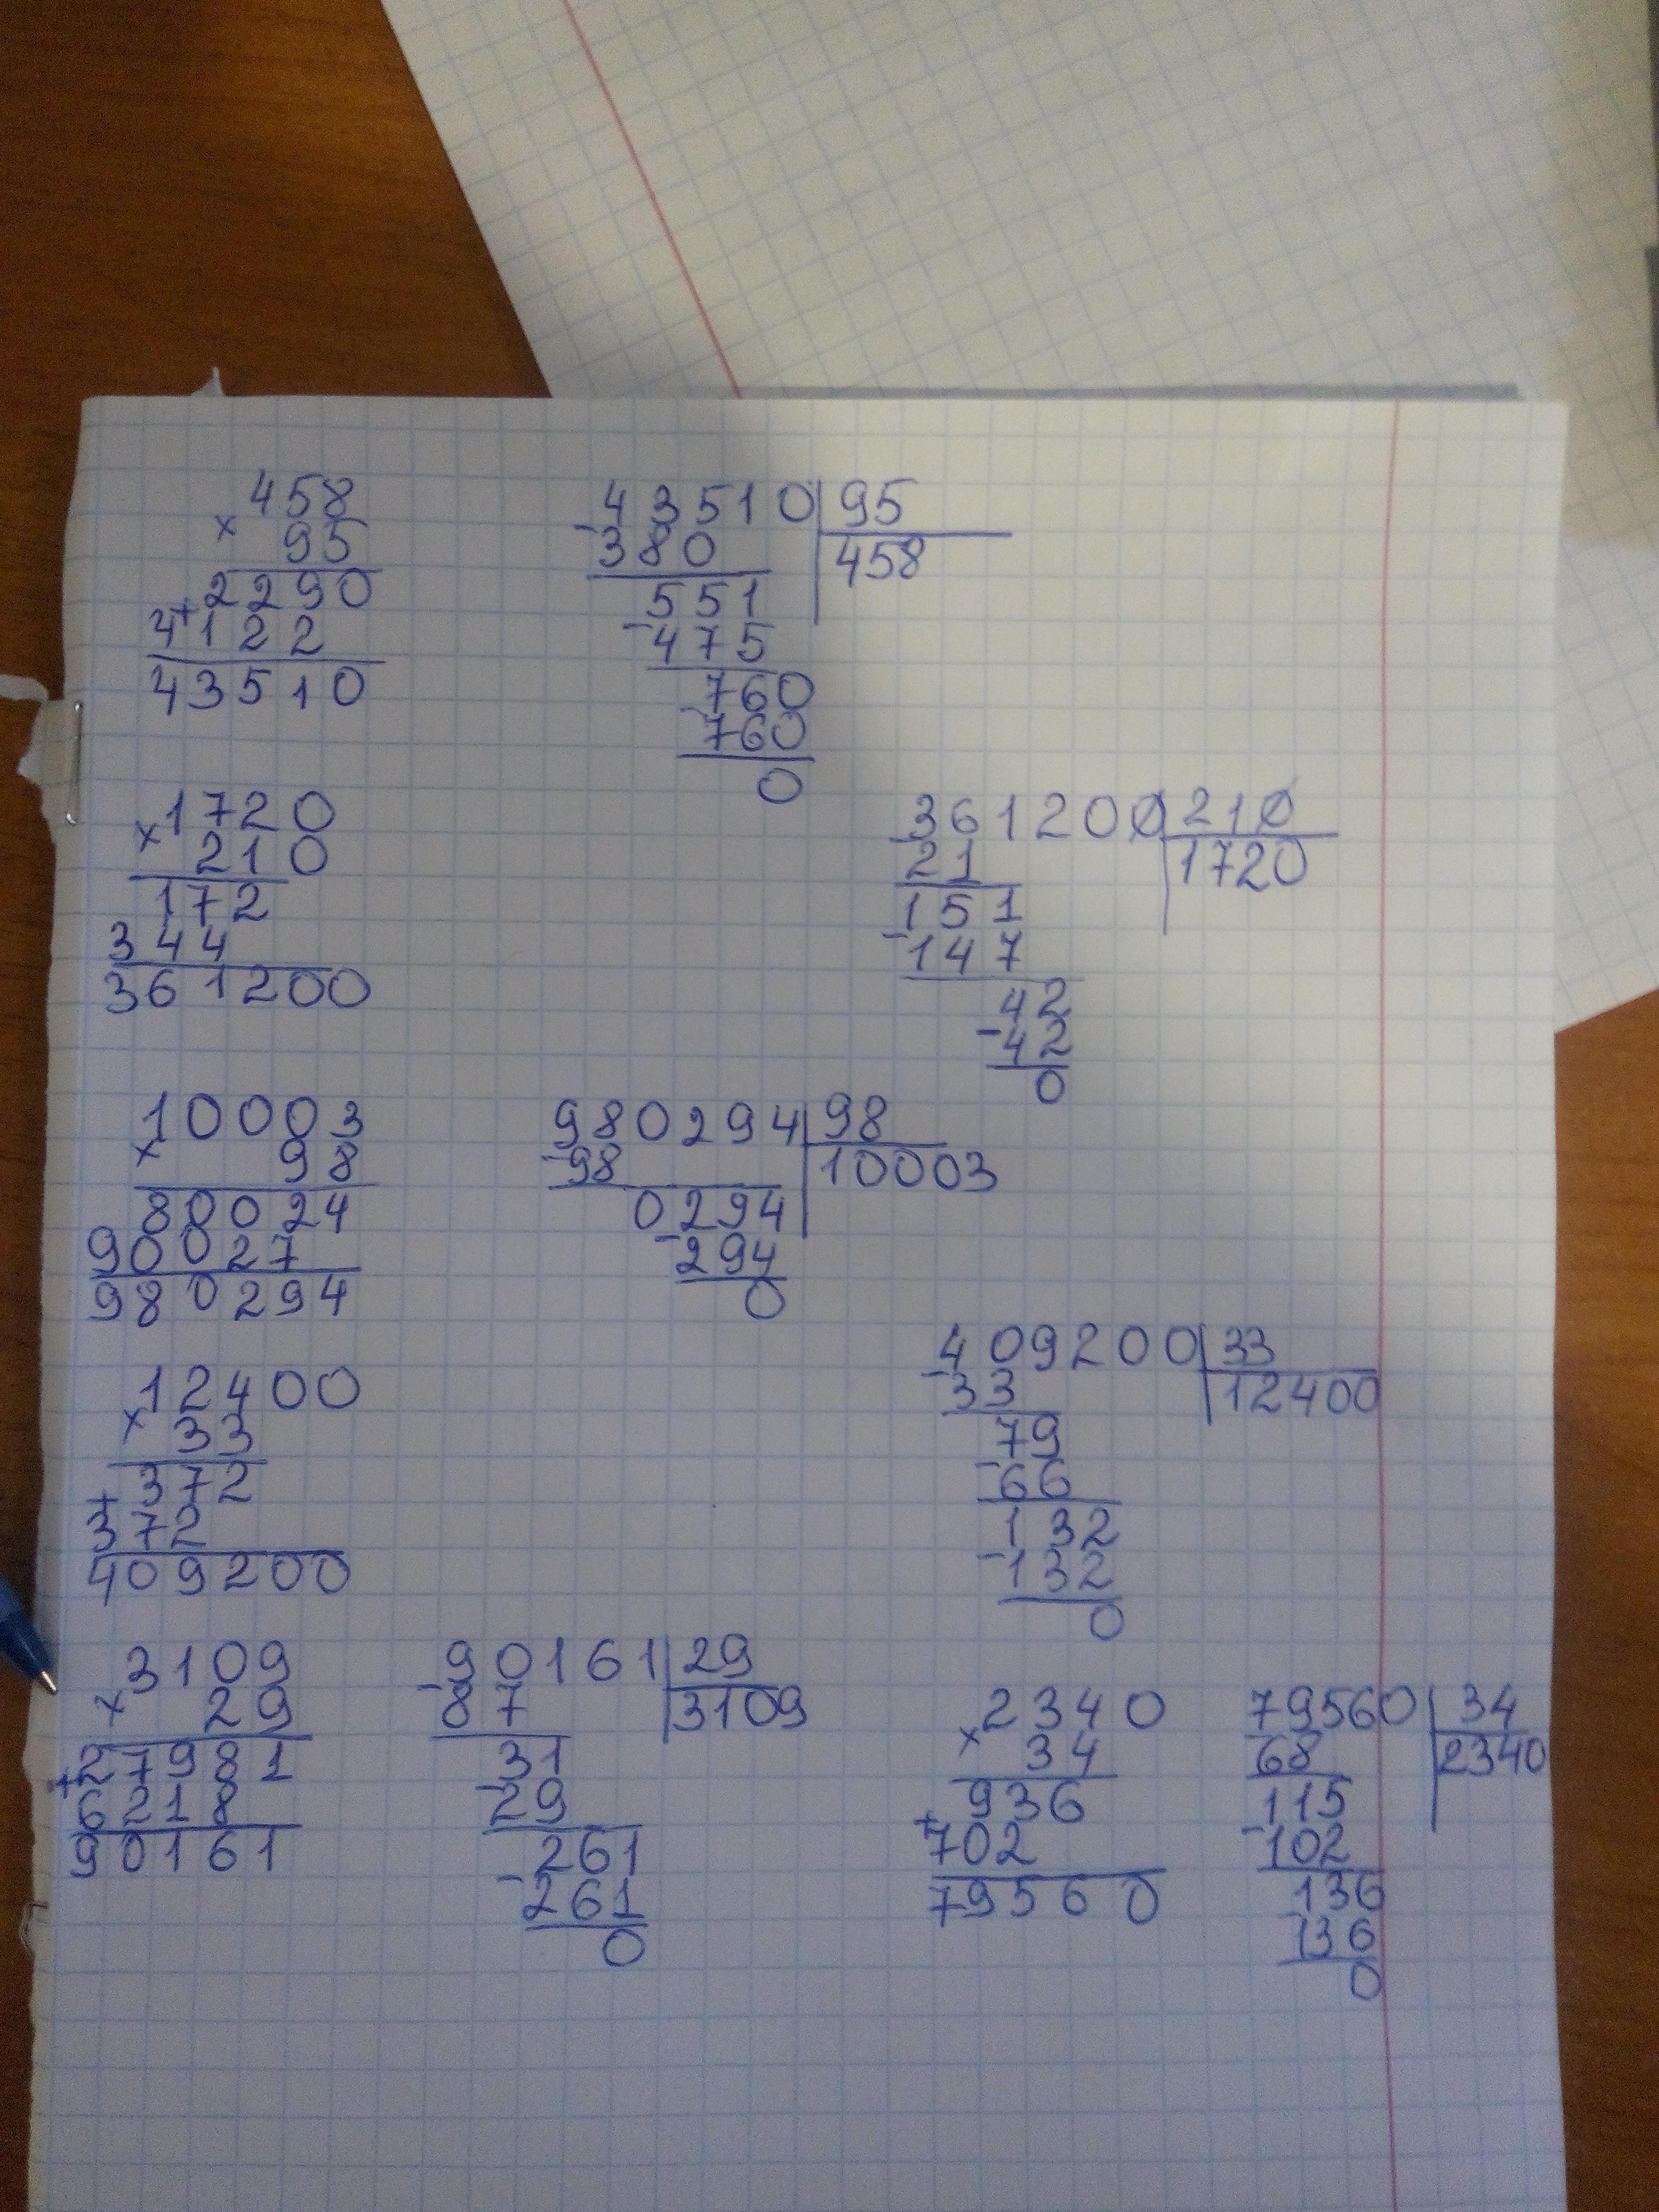 458
× 95
2290
+
4122
43510
43510 | 95
- 380 | 458
551
- 475
760
- 760
0
1720
× 210
172
344
361200
361200 | 210
- 21 | 1720
151
- 147
42
- 42
0
10003
× 98
80024
90027
980294
980294 | 98
- 98 | 10003
0294
- 294
0
12400
× 33
372
+
372
409200
409200 | 33
- 33 | 12400
79
- 66
132
- 132
0
3109
× 29
27981
+
6218
90161
90161 | 29
- 87 | 3109
31
- 29
261
- 261
0
2340
× 34
936
+
702
79560
79560 | 34
- 68 | 2340
115
- 102
136
- 136
0